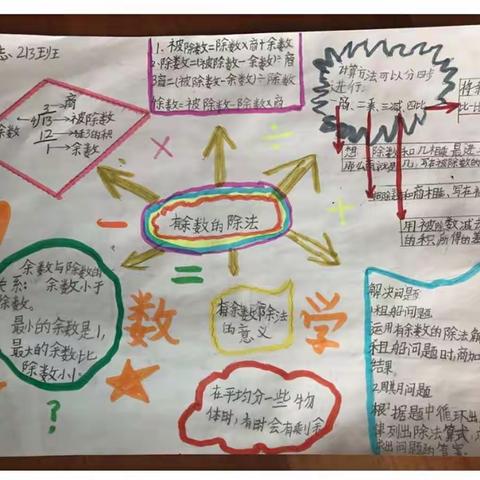 志 213班
1. 被除数=除数×商+余数
2.除数=(被除数-余数)÷商
3商=(被除数-余数)÷除数
余数=被除数-除数×商
计算方法可以分四步
进行:
一商、二乘、三减、四比
3→商
4√13→被除数
12
1→余数
余数
有余数的除法
余数与除数的
关系: 余数小于
除数。
最小的余数是1,
最大的余数比
除数小1。
数
学
有余数除法
的意义
在平均分一些物
体时,有时会有剩余
用被除数减去
的积,所得的差
解决问题
1租船问题
运用有余数的除法解
租船问题时商加
结果。
2.周期问题
根据题中循环出
律列出除法算式,
求出问题的答案。
?